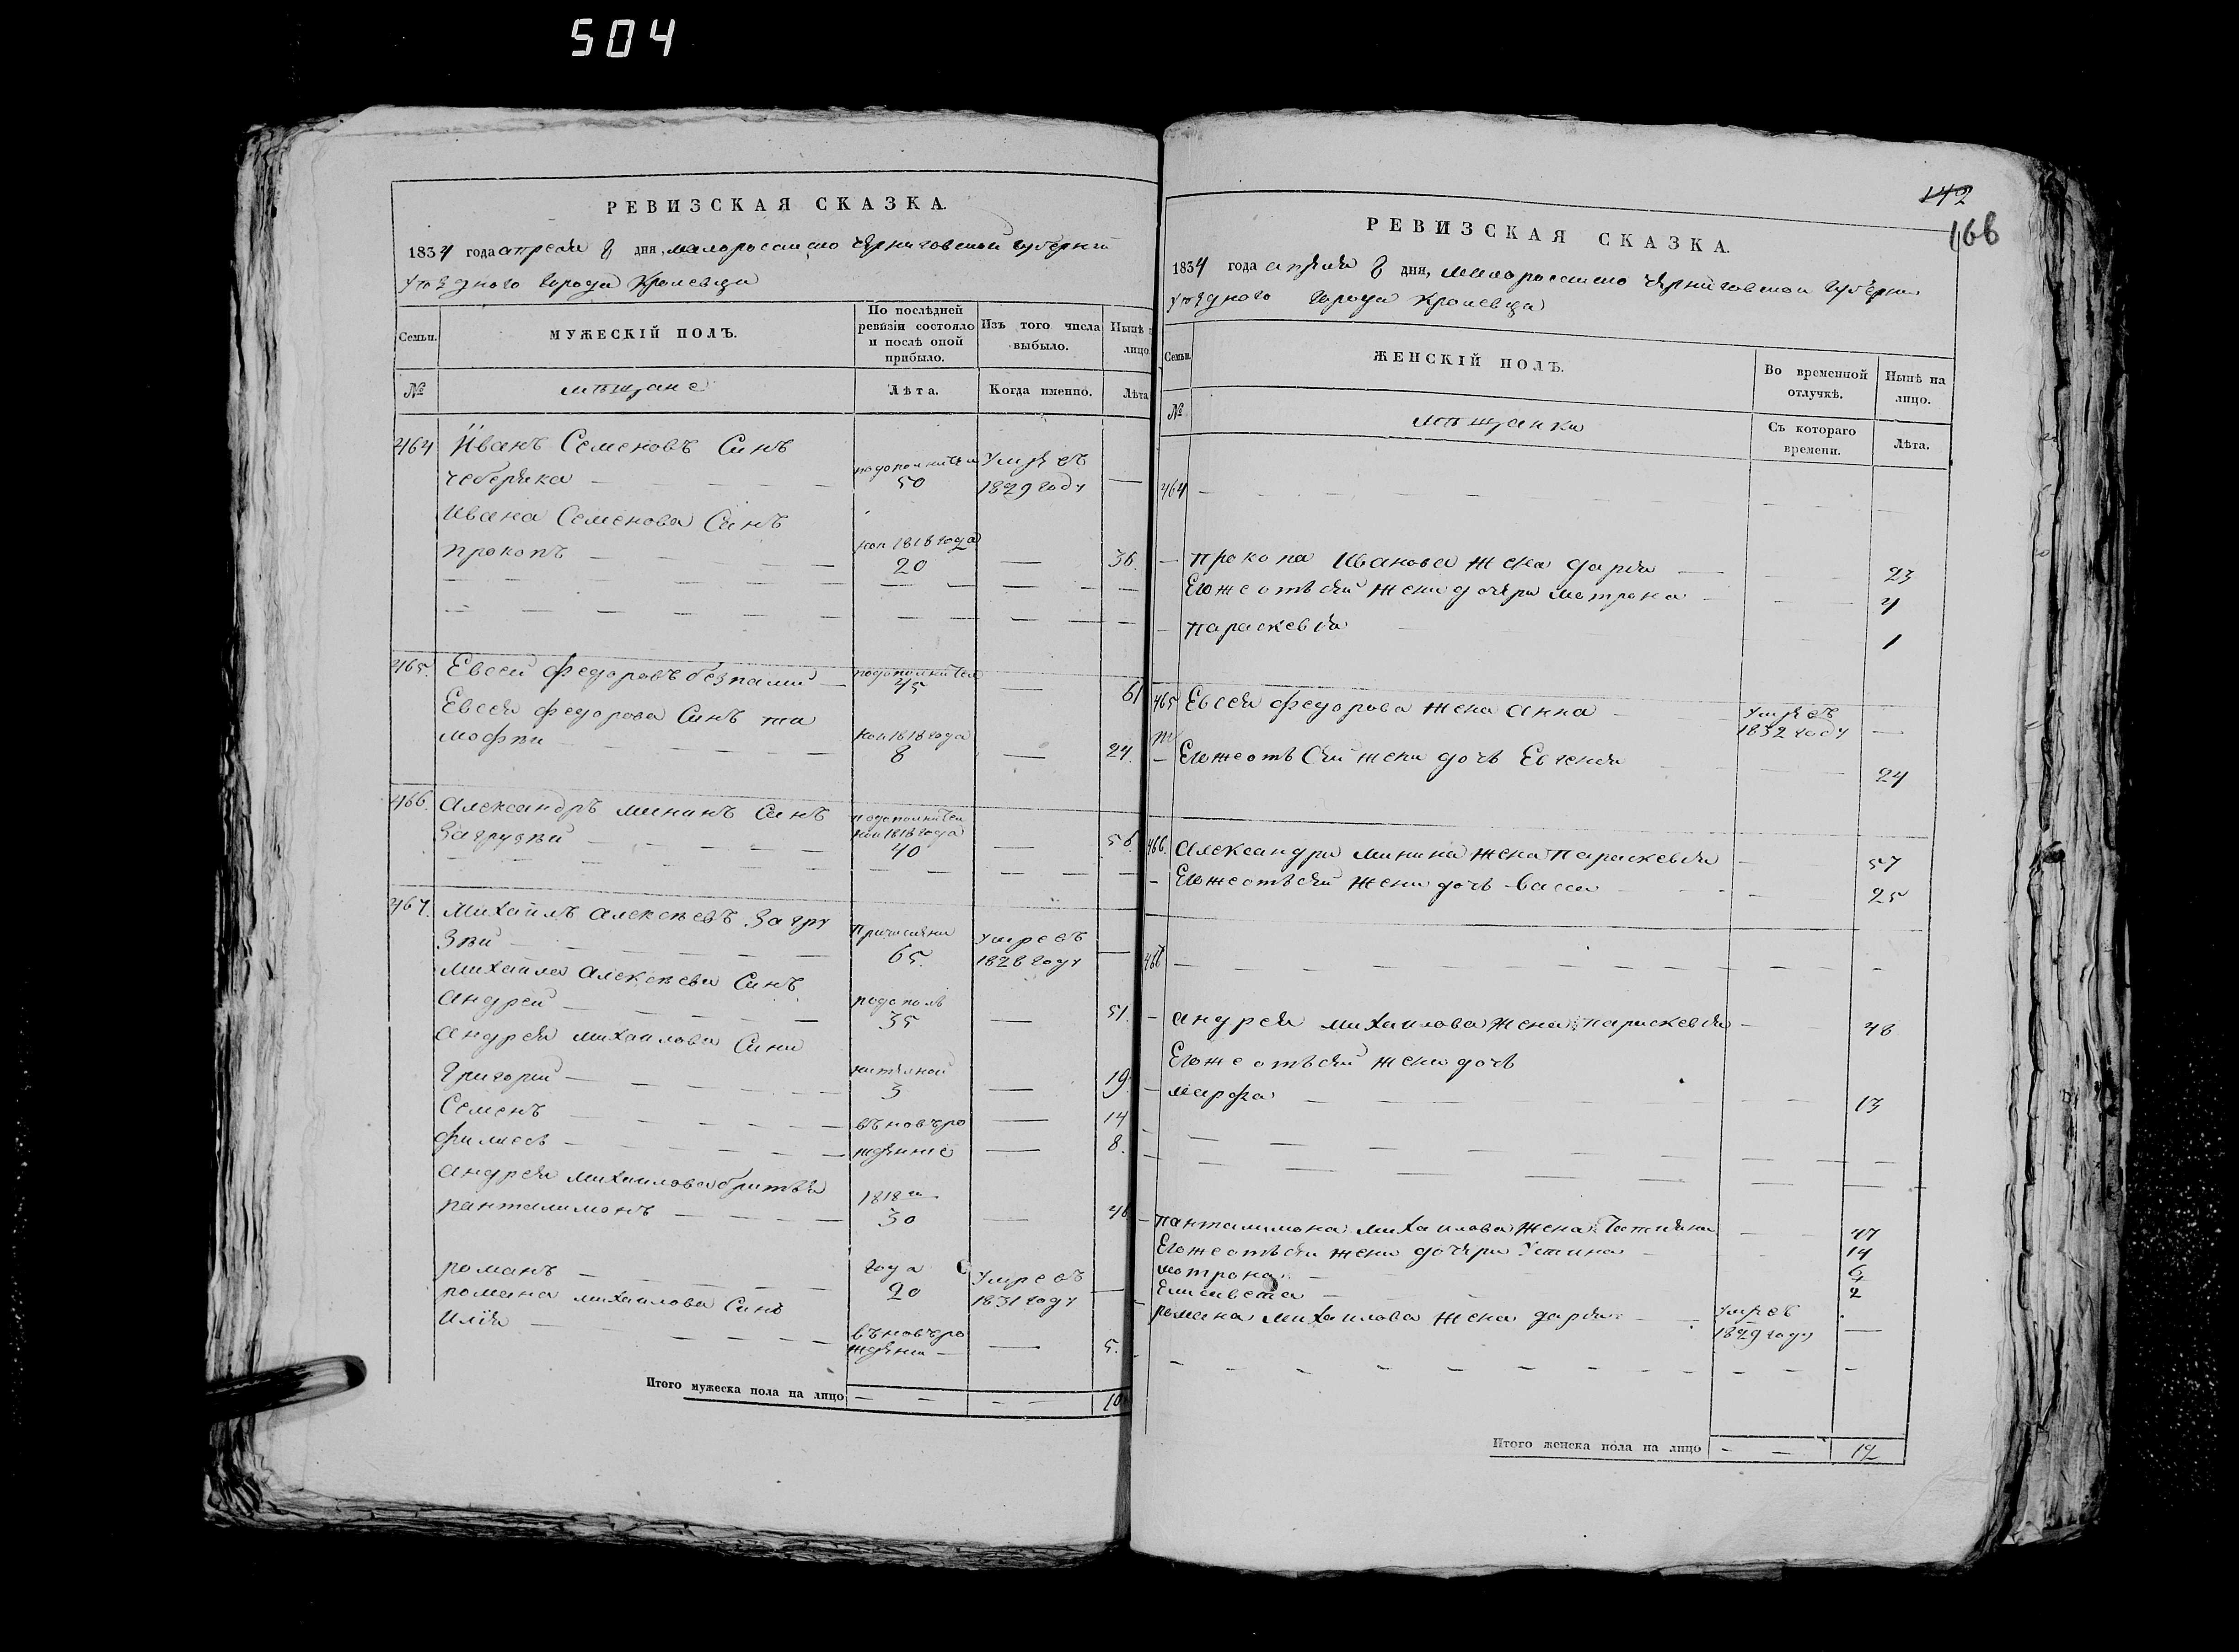 504
РЕВИЗСКАЯ СКАЗКА.
1834 года апреля 8 дня, малороссийской черниговской губернии
уезднаго города Кролевца
Семьи.
МУЖЕСКІЙ ПОЛЪ.
По послѣдней ревизіи состояло и послѣ оной прибыло.
Изъ того числа выбыло.
Нынѣ лицо
№
мѣщане
Лѣта.
Когда именно.
Лѣта
464 Иванъ Семеновъ Синъ
чеберяка 50 Умре въ 1829 году
Ивана Семенова Синъ
прокопъ 1818 года 20 36.
465. Евсей федоровъ 45 61
Евсея федорова Синъ ти
мофѣй 1818 года 8 24.
466. Александръ мининъ Синъ
Загрузкий 1818 года 40 56.
467. Михайлъ алексѣевъ Загру
зкий 65. Умре въ 1828 году
Михайла Алексѣева Синъ
андрей 35 51.
андрея михайлова Сини
Григорий 3 19.
Семенъ въновъро 14
филипъ жденніе 8.
андрея михайлова братья
панталимонъ 1818 30 46
романъ года 20 Умре въ 1831 году
романа михайлова Синъ
илия вънов ро ждении 5.
Итого мужеска пола на лицо 10
142
166
РЕВИЗСКАЯ СКАЗКА.
1834 года апреля 8 дня, малороссийской черниговской губернии
уезднаго города Кролевца
Семьи.
ЖЕНСКІЙ ПОЛЪ.
Во временной отлучкѣ.
Нынѣ на лицо.
№
мѣщанки
Съ котораго времени.
Лѣта.
464
прокопа Иванова жена дарья 23
Егоже отъ сей жени дочери мотрона 4
параскевия 1
465 Евсея федорова жена анна Умре въ 1832 году
Егоже отъ сей жени дочь Евгения 24
466. александра минина жена параскевия 57
Егоже отъ сей жени дочь васса 25
467
андрея михайлова жена параскевия 48
Егоже отъ сей жени дочь
марфа 13
панталимона михайлова жена татияна 47
Егоже отъ сей жени дочери Устина 14
мотрона 6
Елисавета 2
романа михайлова жена дария Умре въ 1829 году
Итого женска пола на лицо 12